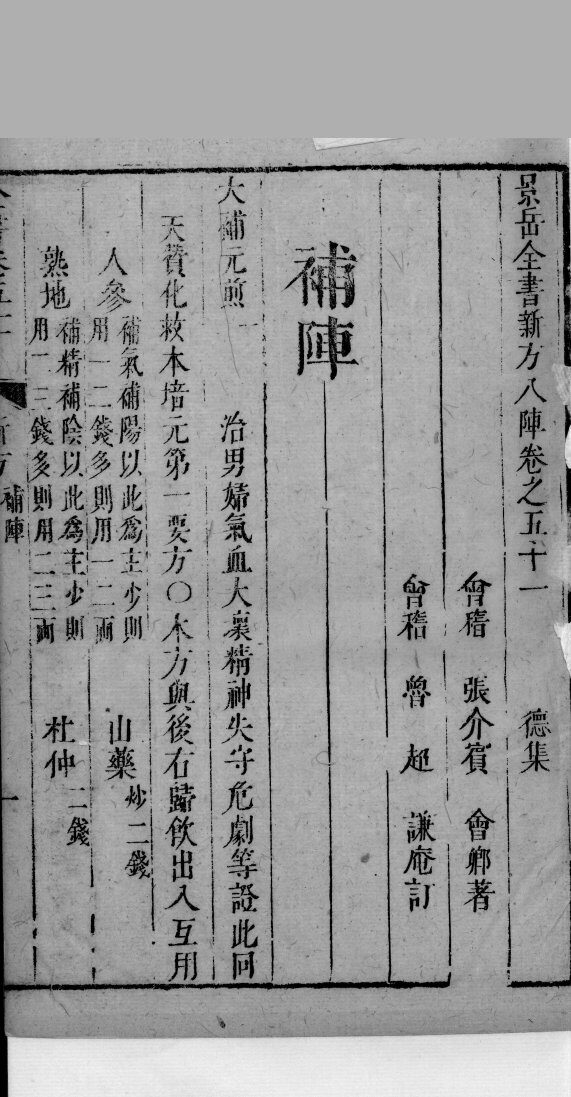 景岳全書新方八陣卷之五十一　德集
會稽　張介賓　會鄉著
會稽　魯　超　謙庵訂
補陣
大補元煎一　治男婦氣血大壞精神失守危劇等證此回
天贊化救本培元第一要方〇本方與後右歸飲出入互用
人參　補氣補陽以此爲主少則
用一二錢多則用一二兩　山藥　炒二錢
熟地　補精補陰以此爲主少則
用二三錢多則用二三兩　杜仲　二錢
補陣
一